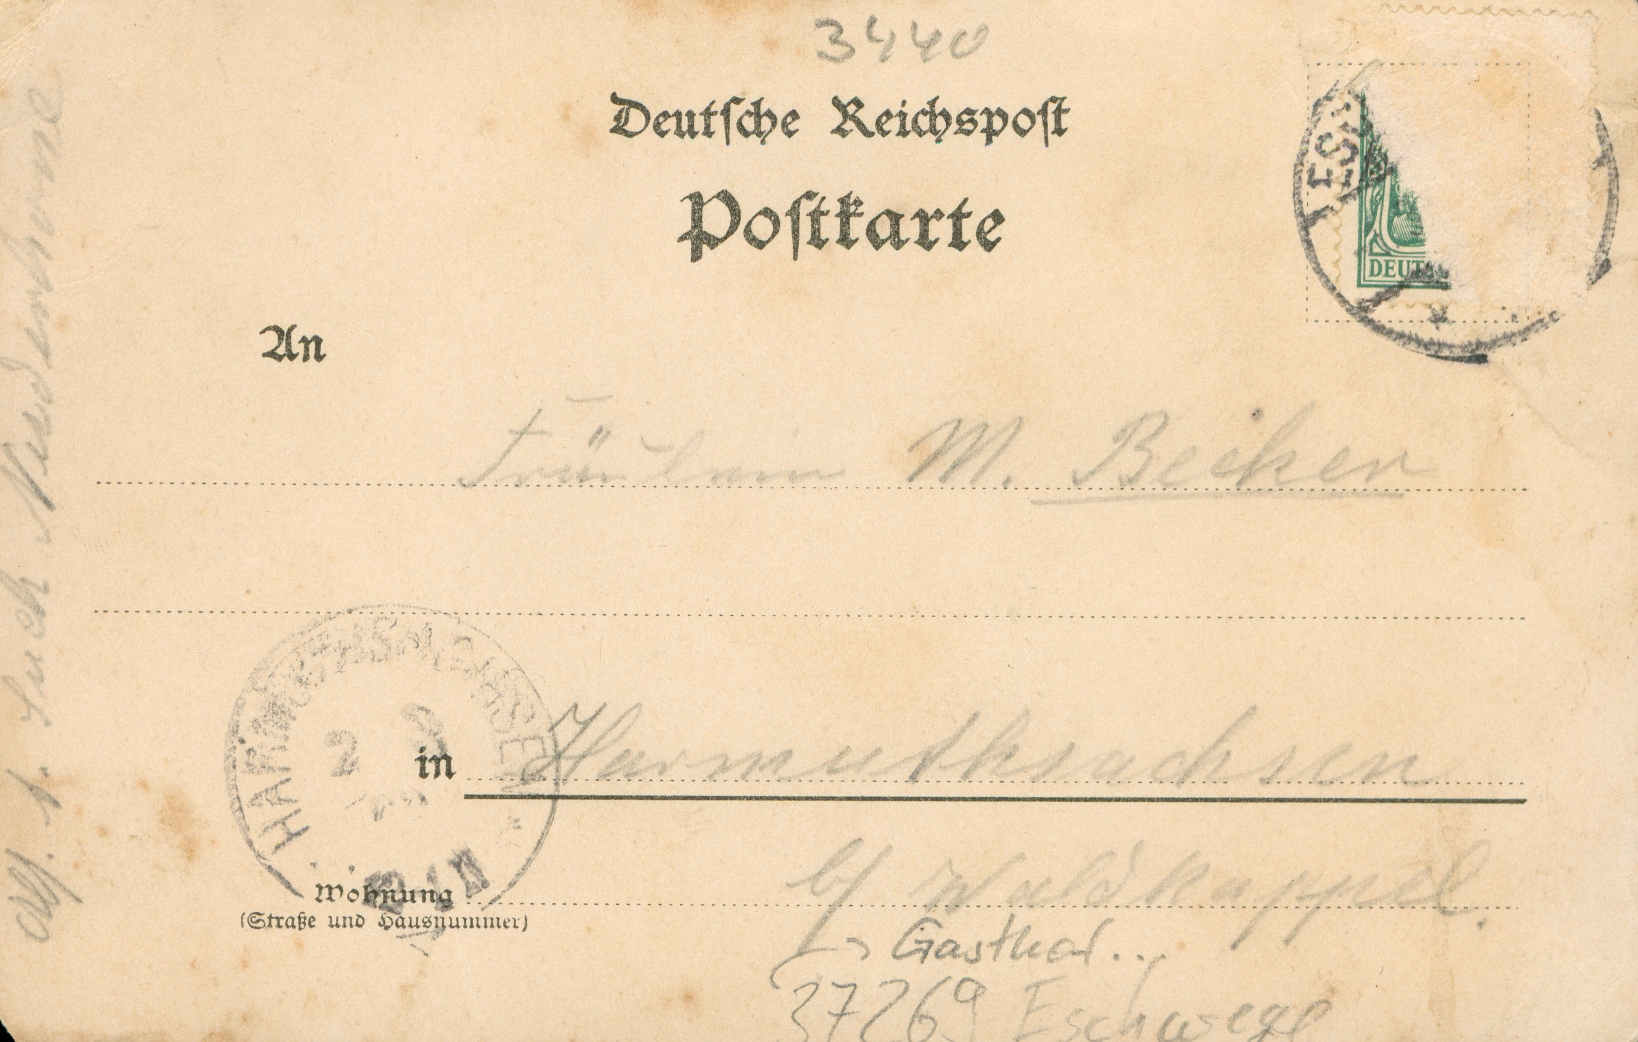 3440
Deutsche Reichspost
Postkarte
ES
DEUT
An
Fräulein M. Becker
HARMUTHSACHSEN
2 8
in Harmuthsachsen
b/ Waldkappel.
Wohnung
(Straße und Hausnummer)
Gasthof...
37269 Eschwege
Niederhone